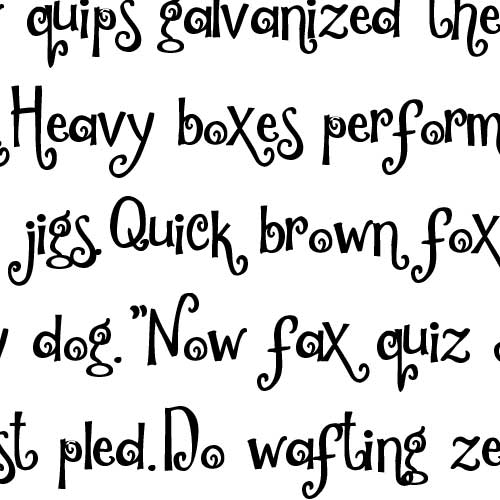 quips galvanized the
Heavy boxes perform
jigs. Quick brown fox
dog. "Now fax quiz
st pled. Do wafting ze